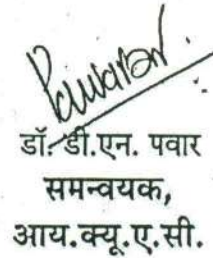 डॉ. डी.एन. पवार
समन्वयक,
आय.क्यू.ए.सी.